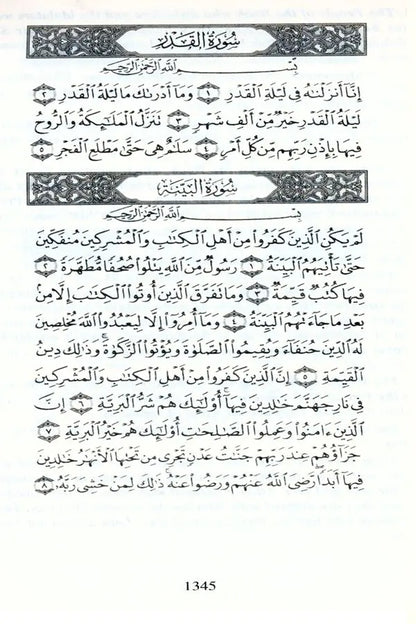 سُورَةُ القَدْرِ
بِسْمِ اللَّهِ الرَّحْمَٰنِ الرَّحِيمِ
إِنَّا أَنزَلْنَٰهُ فِي لَيْلَةِ الْقَدْرِ ١ وَمَا أَدْرَىٰكَ مَا لَيْلَةُ الْقَدْرِ ٢
لَيْلَةُ الْقَدْرِ خَيْرٌ مِّنْ أَلْفِ شَهْرٍ ٣ تَنَزَّلُ الْمَلَٰٓئِكَةُ وَالرُّوحُ
فِيهَا بِإِذْنِ رَبِّهِم مِّن كُلِّ أَمْرٍ ٤ سَلَٰمٌ هِيَ حَتَّىٰ مَطْلَعِ الْفَجْرِ ٥
سُورَةُ البَيِّنَةِ
بِسْمِ اللَّهِ الرَّحْمَٰنِ الرَّحِيمِ
لَمْ يَكُنِ الَّذِينَ كَفَرُوا مِنْ أَهْلِ الْكِتَٰبِ وَالْمُشْرِكِينَ مُنفَكِّينَ
حَتَّىٰ تَأْتِيَهُمُ الْبَيِّنَةُ ١ رَسُولٌ مِّنَ اللَّهِ يَتْلُوا صُحُفًا مُّطَهَّرَةً ٢
فِيهَا كُتُبٌ قَيِّمَةٌ ٣ وَمَا تَفَرَّقَ الَّذِينَ أُوتُوا الْكِتَٰبَ إِلَّا مِنۢ
بَعْدِ مَا جَاءَتْهُمُ الْبَيِّنَةُ ٤ وَمَا أُمِرُوا إِلَّا لِيَعْبُدُوا اللَّهَ مُخْلِصِينَ
لَهُ الدِّينَ حُنَفَاءَ وَيُقِيمُوا الصَّلَوٰةَ وَيُؤْتُوا الزَّكَوٰةَ وَذَٰلِكَ دِينُ
الْقَيِّمَةِ ٥ إِنَّ الَّذِينَ كَفَرُوا مِنْ أَهْلِ الْكِتَٰبِ وَالْمُشْرِكِينَ
فِي نَارِ جَهَنَّمَ خَٰلِدِينَ فِيهَا أُولَٰئِكَ هُمْ شَرُّ الْبَرِيَّةِ ٦ إِنَّ
الَّذِينَ ءَامَنُوا وَعَمِلُوا الصَّٰلِحَٰتِ أُولَٰئِكَ هُمْ خَيْرُ الْبَرِيَّةِ ٧
جَزَاؤُهُمْ عِندَ رَبِّهِمْ جَنَّٰتُ عَدْنٍ تَجْرِي مِن تَحْتِهَا الْأَنْهَٰرُ خَٰلِدِينَ
فِيهَا أَبَدًا رَّضِيَ اللَّهُ عَنْهُمْ وَرَضُوا عَنْهُ ذَٰلِكَ لِمَنْ خَشِيَ رَبَّهُ ٨
1345